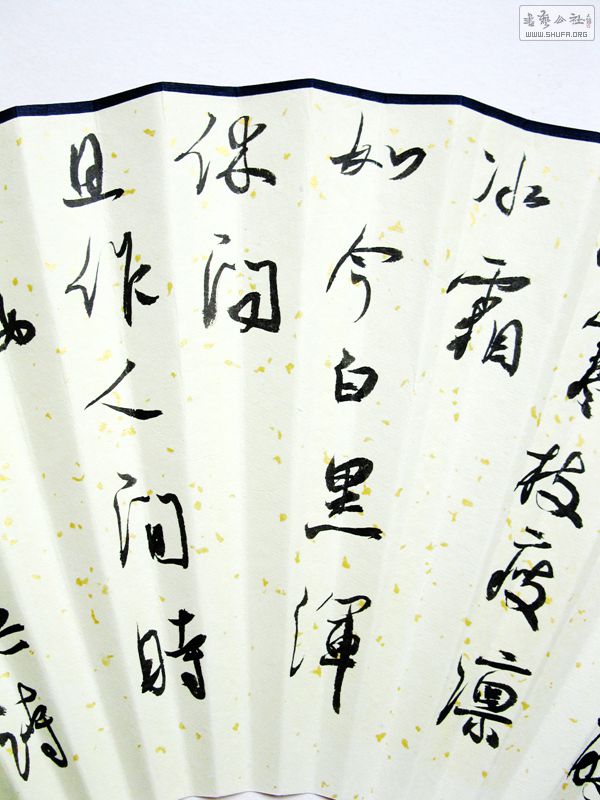 寒枝瘦凛
冰霜
如今白黑渾
休問
且作人間時
詩
書藝公社
WWW.SHUFA.ORG